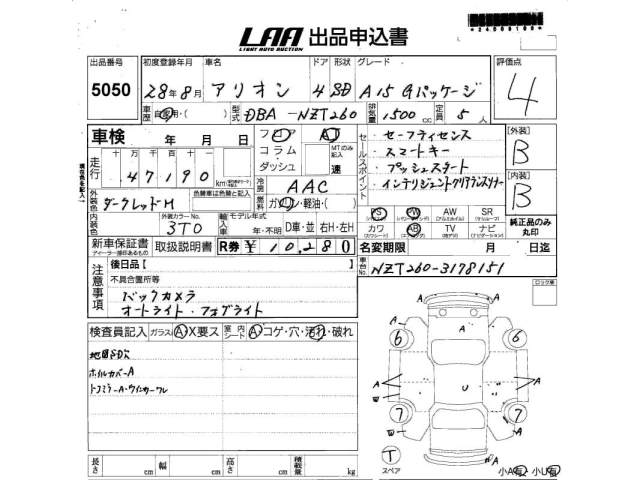 LAA 出品申込書
LIGHT AUTO AUCTION
出品番号 初度登録年月 車名 ドア 形状 グレード 評価点
5050 28年8月 アリオン 4 SD A15 Gパッケージ 4
車歴 自家用・( ) 型式 DBA-NZT260 排気量 1500cc 定員 5人
車検 年 月 日 フロア AT セールスポイント ・セーフティセンス 【外装】
コラム MTのみ記入 ・スマートキー B
ダッシュ 速 ・プッシュスタート
走行 十万 万 千 百 十 ・インテリジェントクリアランスソナー 【内装】
47190 km 冷房 AAC B
外装色 ダークレッドM 色替車は色替と記入 燃料 ガソリン・軽油・( )
PS PW AW SR 純正品のみ丸印
内装色 外装カラーNo. 3T0 輸入車 モデル年式 年・不明 D車・並 右H・左H カワ AB TV ナビ
新車保証書 取扱説明書 R券 ¥10,280 名変期限 月 日迄
ディーラー捺印あるもの
注意事項 後日品【 】 車台No. NZT260-3178151
不具合箇所等 ロック車
バックカメラ
オートライト・フォグライト
検査員記入 ガラス A X要ス 室内シート A コゲ・穴・汚れ・破れ
地図SD欠
ホイルカバーA
A
A
6 6
A A A
U A
7 7
T
スペア
A
小A有 小U有
長さ cm 幅 cm 高さ cm 積載量 kg